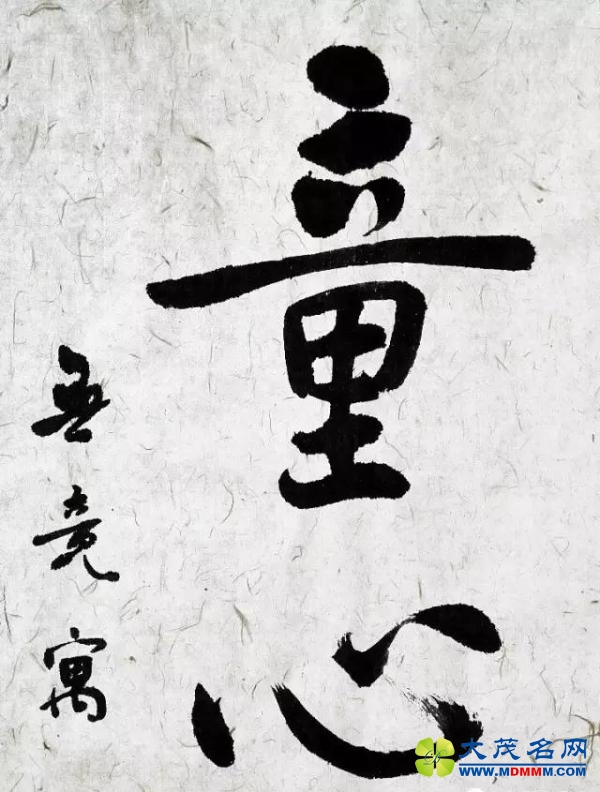 童心
無竟寓
大茂名网
WWW.MDMMM.COM